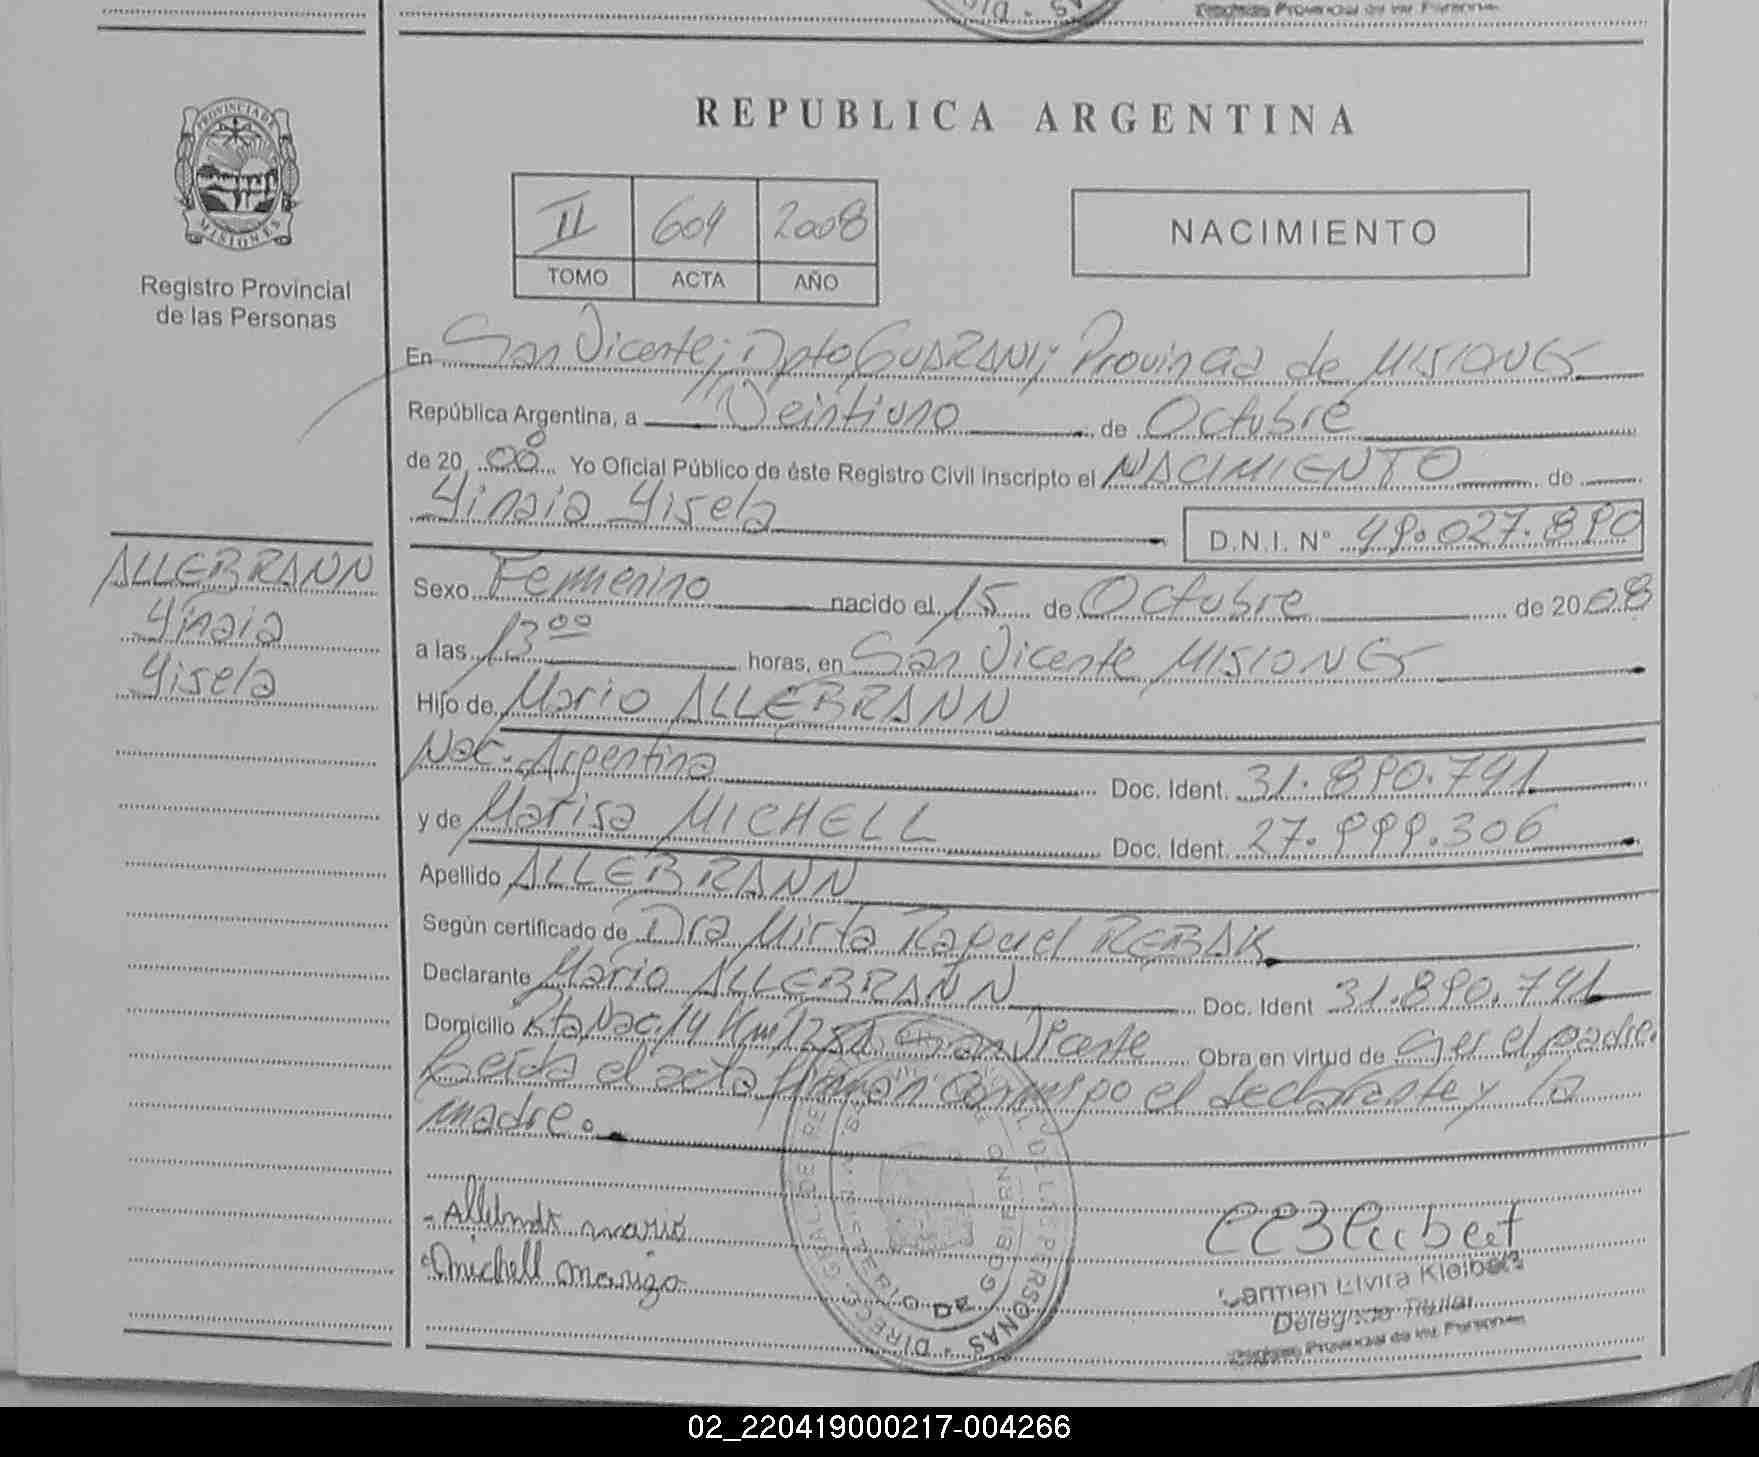 REPUBLICA ARGENTINA
PROVINCIA DE
MISIONES
Registro Provincial
de las Personas
II 604 2008
TOMO ACTA AÑO
NACIMIENTO
En San Vicente; Dpto GUARANI; Provincia de MISIONES
República Argentina, a Veintiuno de Octubre
de 20 08 Yo Oficial Público de éste Registro Civil Inscripto el NACIMIENTO de
Yinaia Yisela
D.N.I. N° 49.027.890
ALLEBRANN
Yinaia
Yisela
Sexo Femenino nacido el 15 de Octubre de 20 08
a las 13 00 horas, en San Vicente MISIONES
Hijo de Mario ALLEBRANN
Nac. Argentina Doc. Ident. 31.890.791
y de Marisa MICHELL Doc. Ident. 27.999.306
Apellido ALLEBRANN
Según certificado de Dra Mirta Raquel REBAK
Declarante Mario ALLEBRANN Doc. Ident 31.890.791
Domicilio Rta Nac. 14 Km San Vicente Obra en virtud de ser el padre.
Leída el acta firman conmigo el declarante y la
madre.
mario
michell
Carmen Elvira Kleibert
Delegado Titular
Provincial de las Personas
DE LAS PERSONAS - DIRECC. GRAL.
MINISTERIO DE GOBIERNO
02_220419000217-004266